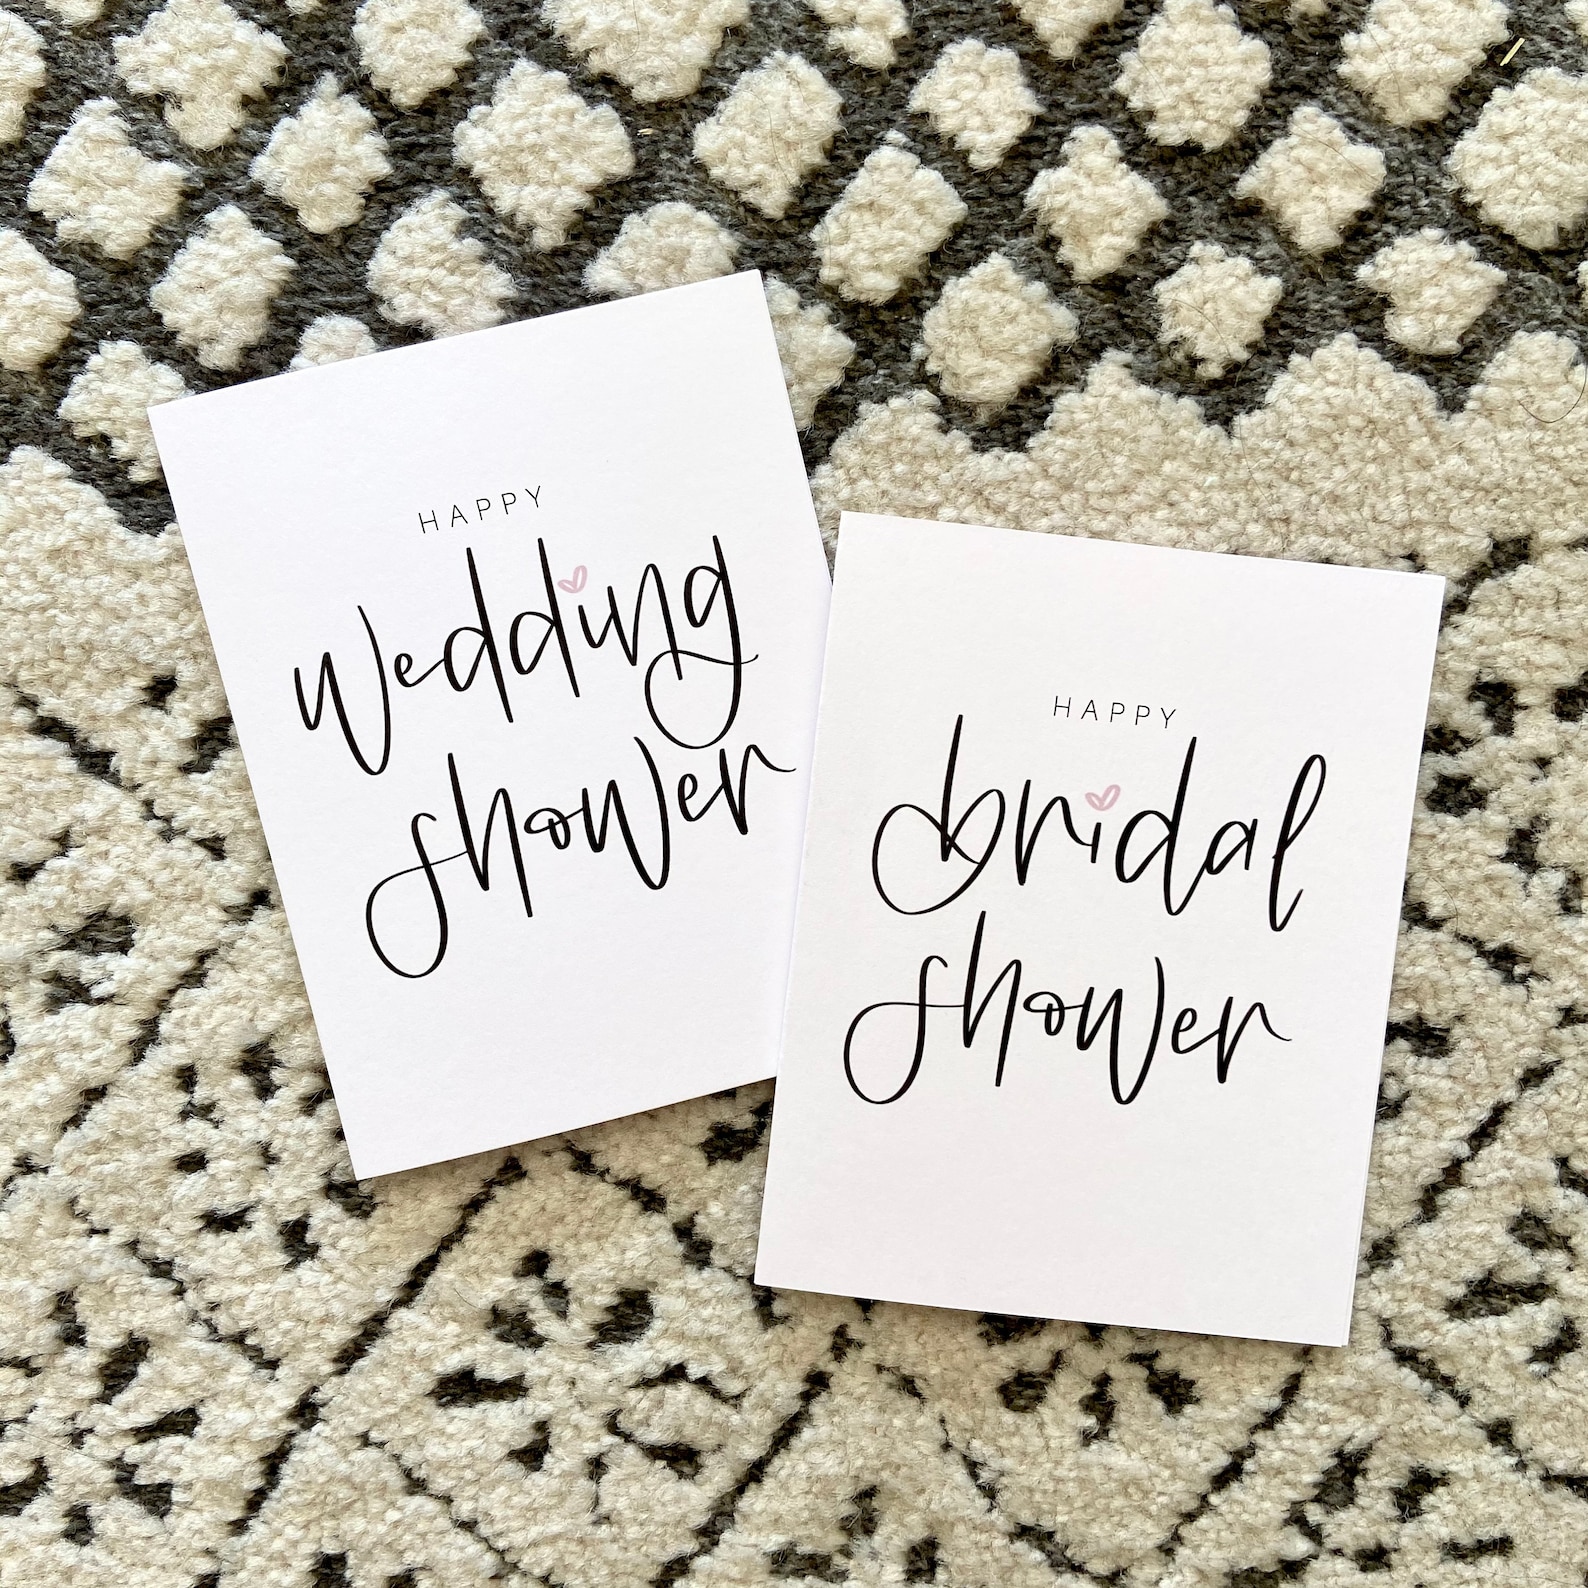 HAPPY
wedding
shower
HAPPY
bridal
shower